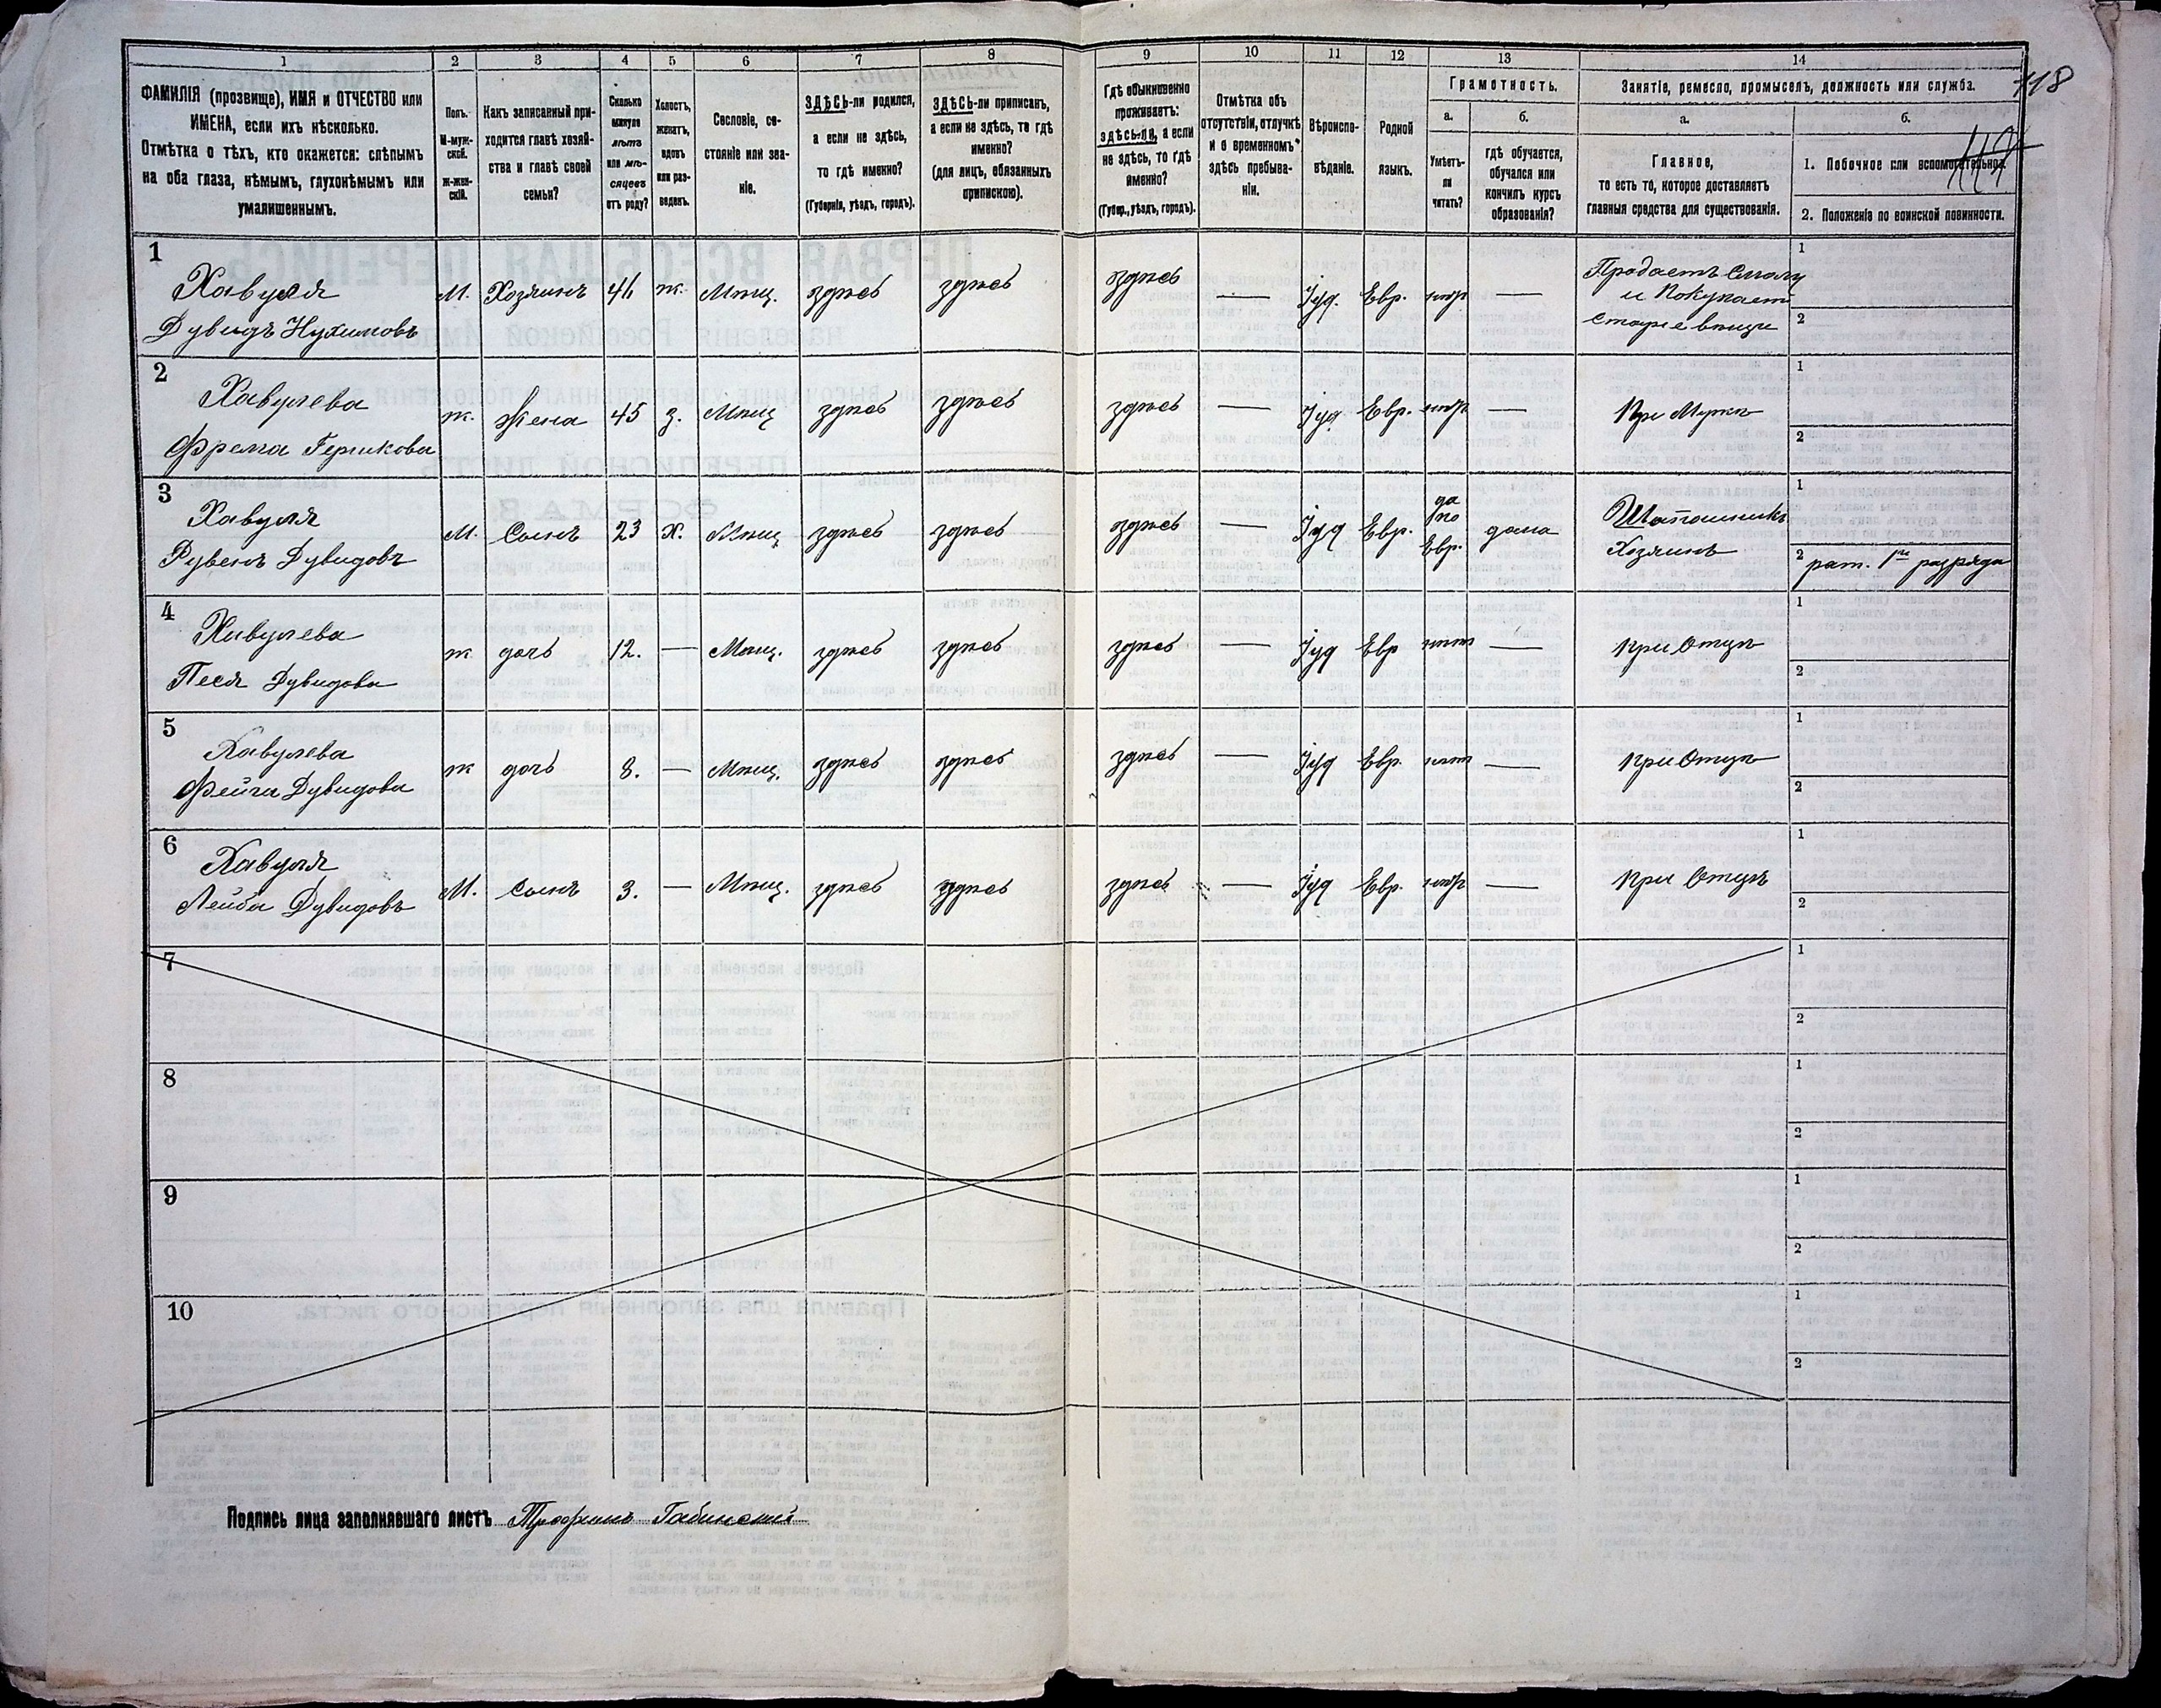 118
1 2 3 4 5 6 7 8 9 10 11 12 13 14
ФАМИЛІЯ (прозвище), ИМЯ и ОТЧЕСТВО или
ИМЕНА, если ихъ нѣсколько.
Отмѣтка о тѣхъ, кто окажется: слѣпымъ
на оба глаза, нѣмымъ, глухонѣмымъ или
умалишеннымъ.
Полъ.
М-муж-
ской.
Ж-жен-
скій.
Какъ записанный при-
ходится главѣ хозяй-
ства и главѣ своей
семьи?
Сколько
минуло
лѣтъ
или мѣ-
сяцевъ
отъ роду?
Холостъ,
женатъ,
вдовъ
или раз-
веденъ.
Сословіе, со-
стояніе или зва-
ніе.
ЗДѢСЬ-ли родился,
а если не здѣсь,
то гдѣ именно?
(Губернія, уѣздъ, городъ).
ЗДѢСЬ-ли приписанъ,
а если не здѣсь, то гдѣ
именно?
(для лицъ, обязанныхъ
припискою).
Гдѣ обыкновенно
проживаетъ:
здѣсь-ли, а если
не здѣсь, то гдѣ
именно?
(Губер., уѣздъ, городъ).
Отмѣтка объ
отсутствіи, отлучкѣ
и о временномъ
здѣсь пребыва-
ніи.
Вѣроиспо-
вѣданіе.
Родной
языкъ.
Грамотность.
а.
Умѣетъ-
ли
читать?
б.
гдѣ обучается,
обучался или
кончилъ курсъ
образованія?
Занятіе, ремесло, промыселъ, должность или служба.
а.
Главное,
то есть то, которое доставляетъ
главныя средства для существованія.
б.
1. Побочное или вспомогательное.
2. Положеніе по воинской повинности.
1
Хавуля
Дувидъ Нухимовъ
М. Хозяинъ 46 ж. Мѣщ. здѣсь здѣсь здѣсь — Іуд. Евр. нѣтъ —
Продаетъ Смолу
и Покупаетъ
старые вещи
1
2
2
Хавулева
Фрема Гершкова
ж. Жена 45 з. Мѣщ здѣсь здѣсь здѣсь — Іуд Евр. нѣтъ — При Мужѣ
1
2
3
Хавуля
Рувенъ Дувидовъ
М. Сынъ 23 Х. Мѣщ здѣсь здѣсь здѣсь — Іуд Евр.
да
по
Евр.
дома
Шапошникъ
Хозяинъ
1
2 рат. 1го разряда
4
Хавулева
Песя Дувидова
ж дочь 12. — Мѣщ. здѣсь здѣсь здѣсь — Іуд Евр нѣтъ — при Отцѣ
1
2
5
Хавулева
Фейга Дувидова
ж дочь 8. — Мѣщ. здѣсь здѣсь здѣсь — Іуд Евр. нѣтъ — при Отцѣ
1
2
6
Хавуля
Лейба Дувидовъ
М. Сынъ 3. — Мѣщ. здѣсь здѣсь здѣсь — Іуд Евр. нѣтъ — при Отцѣ
1
2
7
1
2
8
1
2
9
1
2
10
1
2
Подпись лица заполнявшаго листъ Трофимъ Габинский